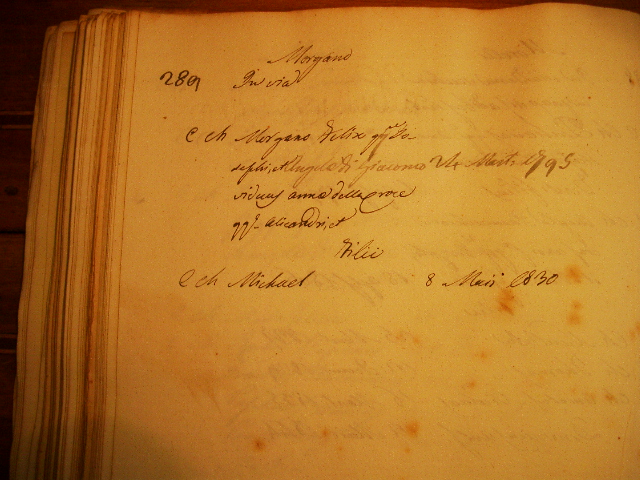 Morgano
289 In via
C ch Morgano Felix qqm Jo-
sephi, et Angela di Giacomo 24 Martii 1795
viduus annæ della Croce
qqm Alexandri, et
Filii
C ch Michael 8 Maii 1830